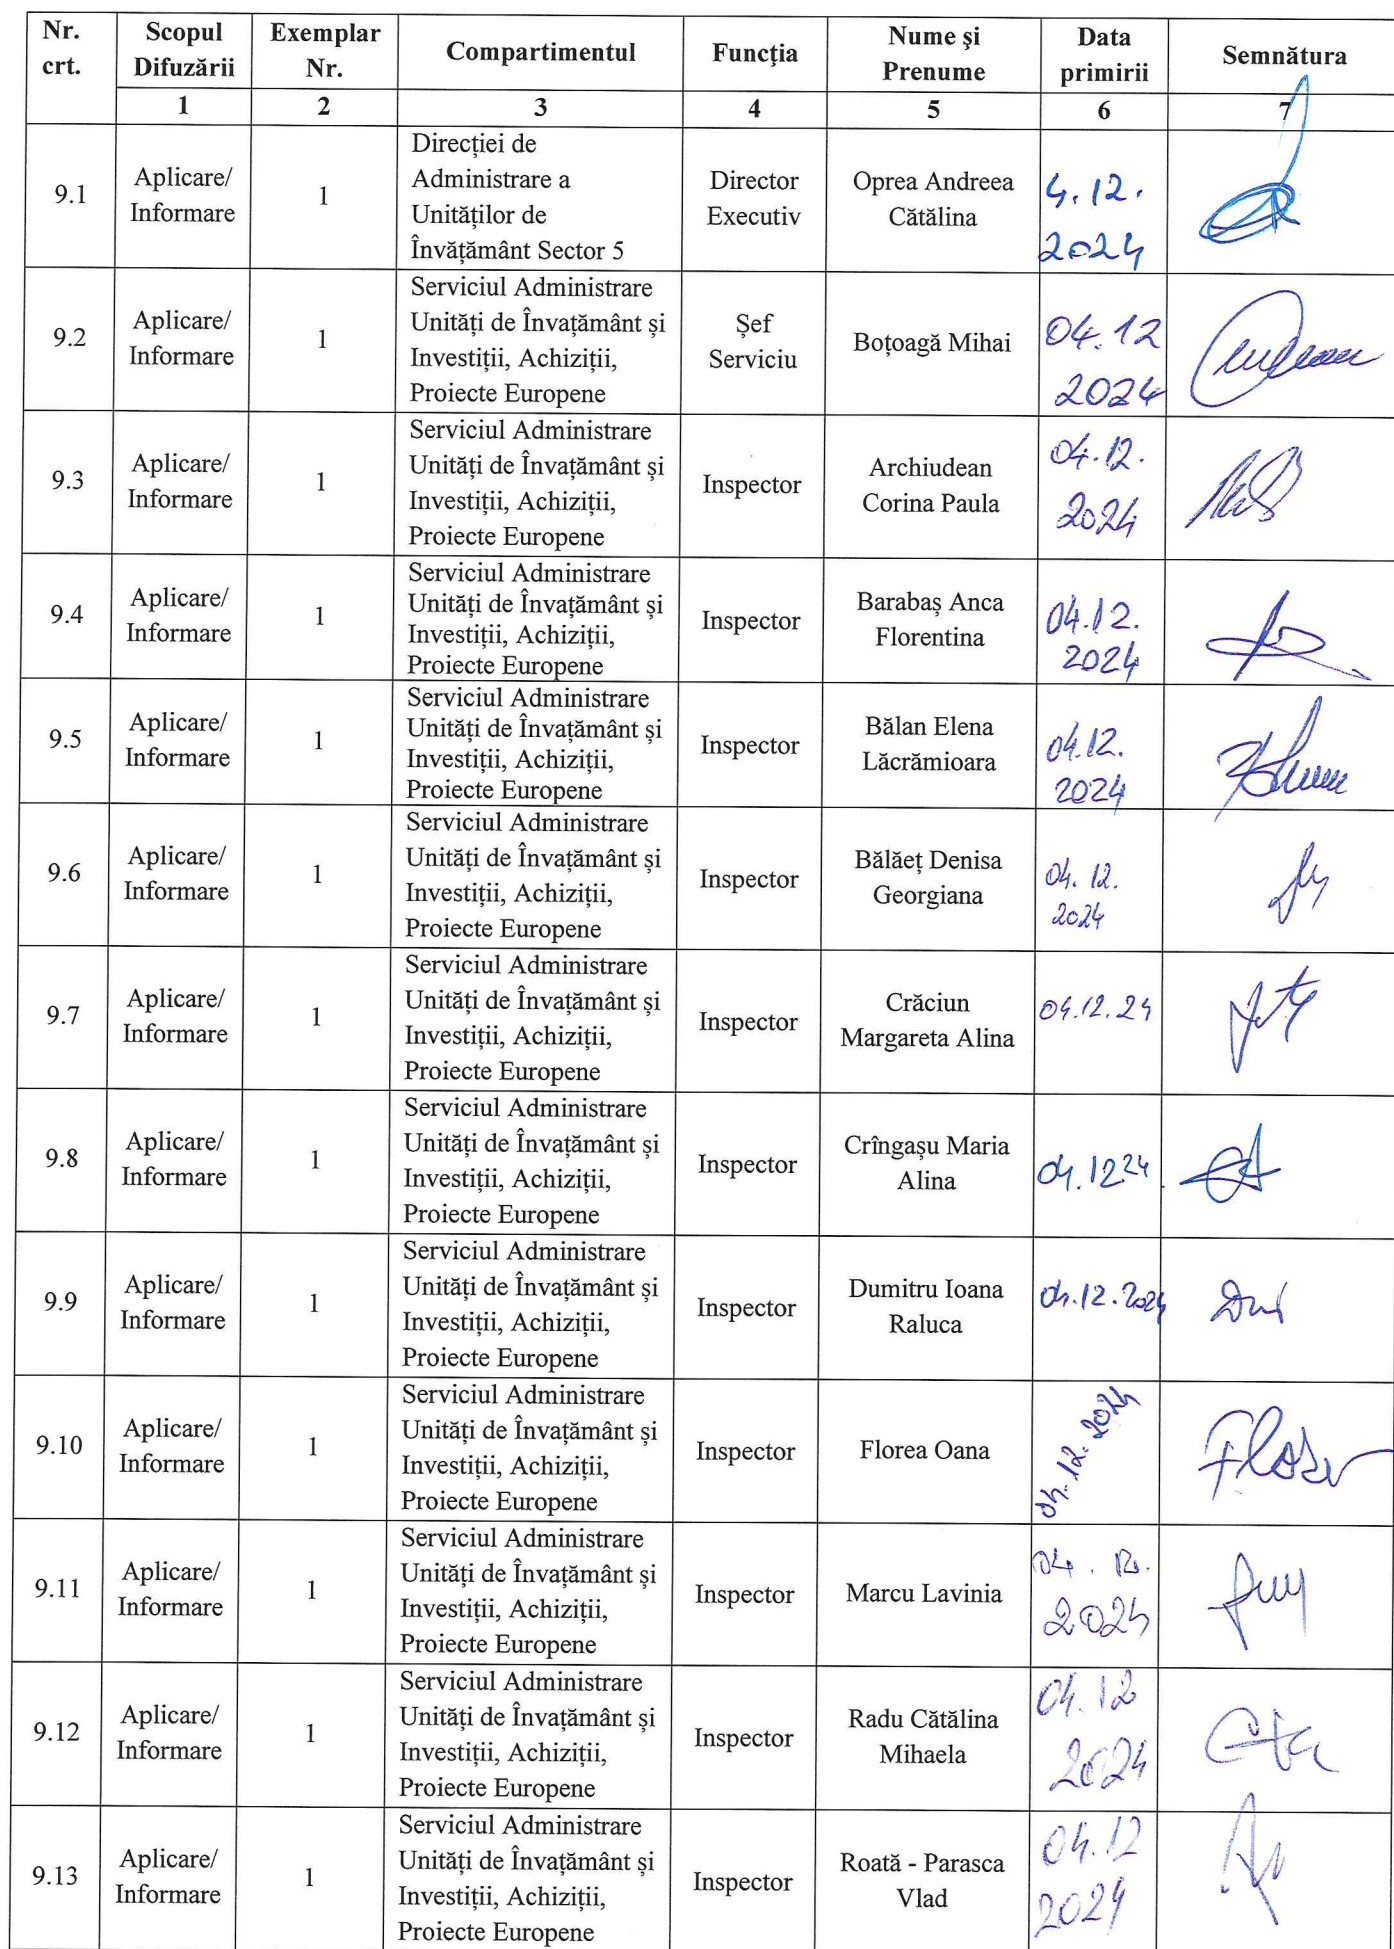 Nr. crt. Scopul Difuzării Exemplar Nr. Compartimentul Funcţia Nume şi Prenume Data primirii Semnătura
1 2 3 4 5 6 7
9.1 Aplicare/ Informare 1 Direcției de Administrare a Unităților de Învățământ Sector 5 Director Executiv Oprea Andreea Cătălina 4.12. 2024
9.2 Aplicare/ Informare 1 Serviciul Administrare Unități de Învațământ și Investiții, Achiziții, Proiecte Europene Șef Serviciu Boțoagă Mihai 04.12 2024
9.3 Aplicare/ Informare 1 Serviciul Administrare Unități de Învațământ și Investiții, Achiziții, Proiecte Europene Inspector Archiudean Corina Paula 04.12. 2024
9.4 Aplicare/ Informare 1 Serviciul Administrare Unități de Învațământ și Investiții, Achiziții, Proiecte Europene Inspector Barabaș Anca Florentina 04.12. 2024
9.5 Aplicare/ Informare 1 Serviciul Administrare Unități de Învațământ și Investiții, Achiziții, Proiecte Europene Inspector Bălan Elena Lăcrămioara 04.12. 2024
9.6 Aplicare/ Informare 1 Serviciul Administrare Unități de Învațământ și Investiții, Achiziții, Proiecte Europene Inspector Bălăeț Denisa Georgiana 04.12. 2024
9.7 Aplicare/ Informare 1 Serviciul Administrare Unități de Învațământ și Investiții, Achiziții, Proiecte Europene Inspector Crăciun Margareta Alina 04.12.24
9.8 Aplicare/ Informare 1 Serviciul Administrare Unități de Învațământ și Investiții, Achiziții, Proiecte Europene Inspector Crîngașu Maria Alina 04.12 24
9.9 Aplicare/ Informare 1 Serviciul Administrare Unități de Învațământ și Investiții, Achiziții, Proiecte Europene Inspector Dumitru Ioana Raluca 04.12.2024
9.10 Aplicare/ Informare 1 Serviciul Administrare Unități de Învațământ și Investiții, Achiziții, Proiecte Europene Inspector Florea Oana 04.12.2024
9.11 Aplicare/ Informare 1 Serviciul Administrare Unități de Învațământ și Investiții, Achiziții, Proiecte Europene Inspector Marcu Lavinia 04.12. 2024
9.12 Aplicare/ Informare 1 Serviciul Administrare Unități de Învațământ și Investiții, Achiziții, Proiecte Europene Inspector Radu Cătălina Mihaela 04.12 2024
9.13 Aplicare/ Informare 1 Serviciul Administrare Unități de Învațământ și Investiții, Achiziții, Proiecte Europene Inspector Roată - Parasca Vlad 04.12 2024